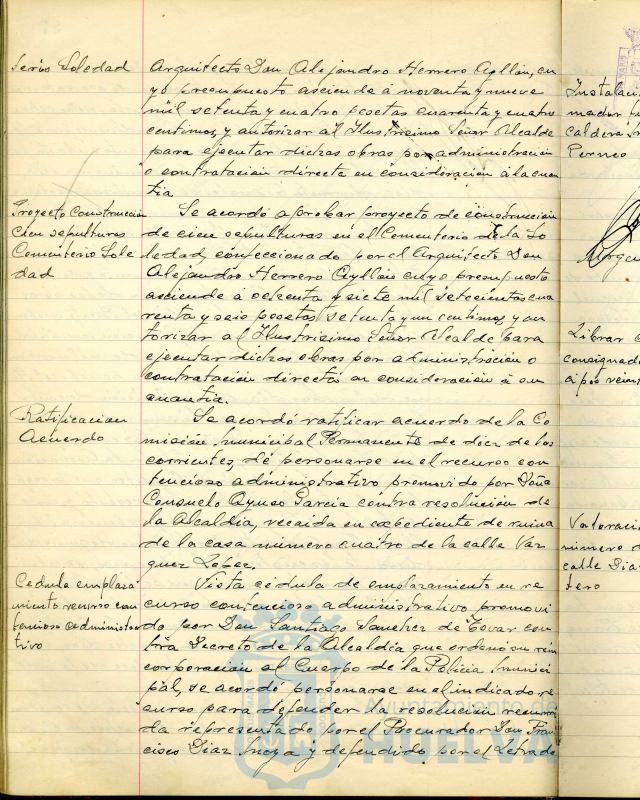 terio Soledad
Arquitecto Don Alejandro Herrero Ayllón, cu
yo presupuesto asciende a noventa y nueve
mil setenta y cuatro pesetas cuarenta y cuatro
centimos, y autorizar al Ilustrisimo Señor Alcalde
para ejecutar dichas obras por administración
o contratación directa en consideración a la cuan
tia.
Proyecto Construccion
cien sepulturas
Cementerio Sole
dad
Se acordó aprobar proyecto de construcción
de cien sepulturas en el Cementerio de la So
ledad, confeccionado por el Arquitecto Don
Alejandro Herrero Ayllón cuyo presupuesto
asciende a ochenta y siete mil setecientas cua
renta y seis pesetas setenta y un centimos, y au
torizar al Ilustrisimo Señor Alcalde para
ejecutar dichas obras por administración o
contratación directa en consideración a su
cuantia.
Ratificacion
Acuerdo
Se acordó ratificar acuerdo de la Co
misión municipal Permanente de diez de los
corrientes, de personarse en el recurso con
tencioso administrativo promovido por Doña
Consuelo Ayuso Garcia contra resolución de
la Alcaldia, recaida en expediente de ruina
de la casa número cuatro de la calle Vaz
quez Lopez.
Cedula emplaza
miento recurso con
tencioso administra
tivo
Vista cédula de emplazamiento en re
curso contencioso administrativo promovi
do por Don Santiago Sanchez de Tovar con
tra Decreto de la Alcaldia que ordenó su rein
corporación al Cuerpo de la Policia munici
pal, se acordó personarse en el indicado re
curso para defender la resolución recurri
da representado por el Procurador Don Fran
cisco Diaz y defendido por el Letrado
Instalaci
caldera
Librar
consignad
Valoraci
número
calle Dia
tero
Ayuntamiento de
HUELVA